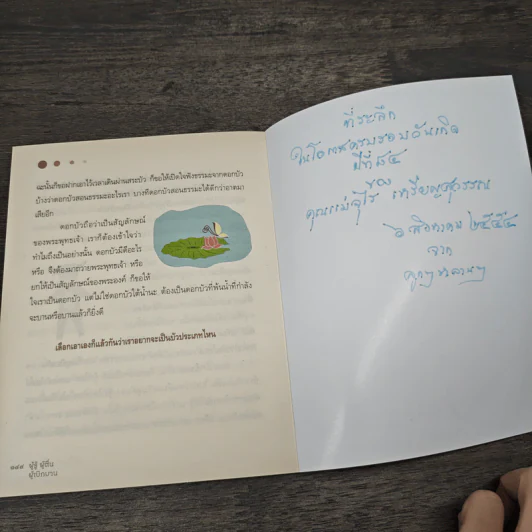 ฉะนั้นก็ขอฝากเอาไว้เวลาเดินผ่านสระบัว ก็ขอให้เปิดใจฟังธรรมะจากดอกบัว
บ้างว่าดอกบัวสอนธรรมะอะไรเรา บางทีดอกบัวสอนธรรมะได้ดีกว่าอาตมา
เสียอีก
ดอกบัวถือว่าเป็นสัญลักษณ์
ของพระพุทธเจ้า เราก็ต้องเข้าใจว่า
ทำไมถึงเป็นอย่างนั้น ดอกบัวมีดีอะไร
หรือ จึงต้องมาถวายพระพุทธเจ้า หรือ
ยกให้เป็นสัญลักษณ์ของพระองค์ ก็ขอให้
ใจเราเป็นดอกบัว แต่ไม่ใช่ดอกบัวใต้น้ำนะ ต้องเป็นดอกบัวที่พ้นน้ำที่กำลัง
จะบานหรือบานแล้วก็ยิ่งดี
เลือกเอาเองก็แล้วกันว่าเราอยากจะเป็นบัวประเภทไหน
๑๔๙ ผู้รู้ ผู้ตื่น
ผู้เบิกบาน
ที่ระลึก
ในโอกาสครบรอบวันเกิด
ปีที่ ๘๔
ของ
คุณแม่
๖ สิงหาคม ๒๕๕๔
จาก
ลูกๆ หลานๆ